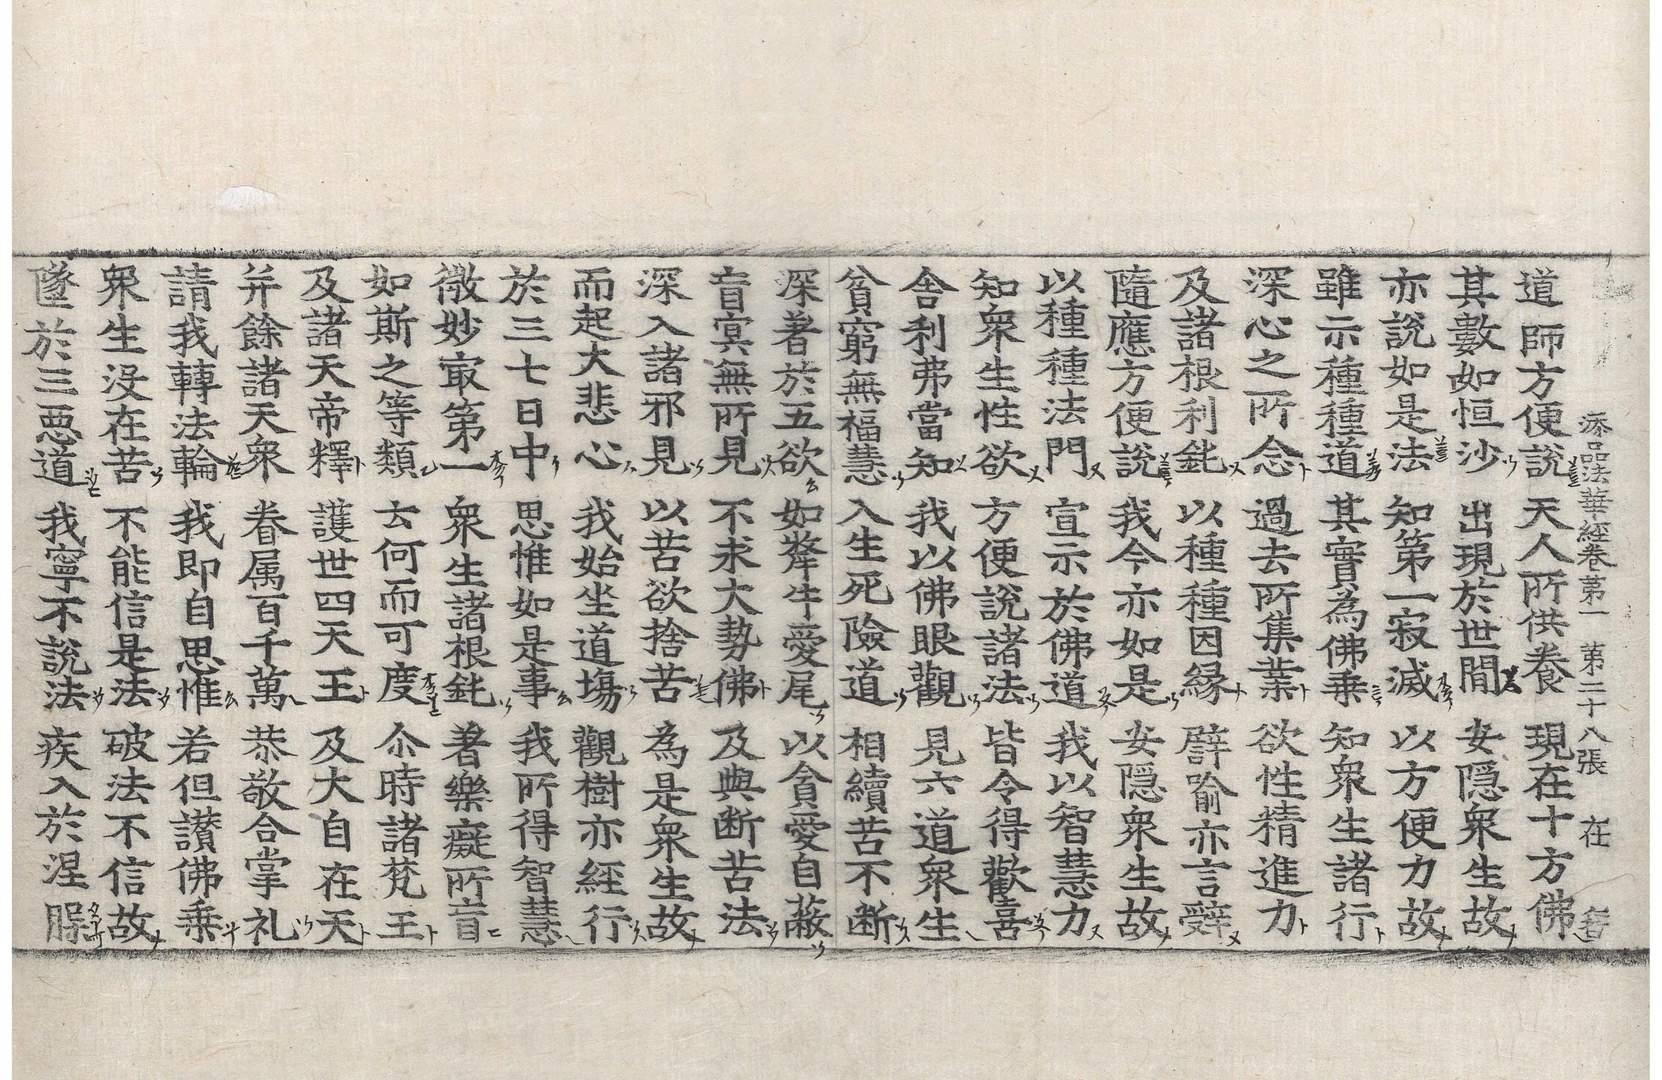 添品法華經卷第一 第二十八張 在
道師方便說 天人所供養 現在十方佛
其數如恒沙 出現於世間 安隱衆生故
亦說如是法 知第一寂滅 以方便力故
雖示種種道 其實為佛乗 知衆生諸行
深心之所念 過去所集業 欲性精進力
及諸根利鈍 以種種因縁 譬喻亦言辤
隨應方便說 我今亦如是 安隱衆生故
以種種法門 宣示於佛道 我以智慧力
知衆生性欲 方便說諸法 皆令得歡喜
舎利弗當知 我以佛眼觀 見六道衆生
貧窮無福慧 入生死險道 相續苦不断
深著於五欲 如犛牛愛尾 以貪愛自蔽
盲冥無所見 不求大勢佛 及與断苦法
深入諸邪見 以苦欲捨苦 為是衆生故
而起大悲心 我始坐道塲 觀樹亦經行
於三七日中 思惟如是事 我所得智慧
微妙冣第一 衆生諸根鈍 著樂癡所盲
如斯之等類 云何而可度 尒時諸梵王
及諸天帝釋 護世四天王 及大自在天
并餘諸天衆 眷属百千萬 恭敬合掌礼
請我轉法輪 我即自思惟 若但讃佛乗
衆生没在苦 不能信是法 破法不信故
墜於三惡道 我寧不說法 疾入於涅槃